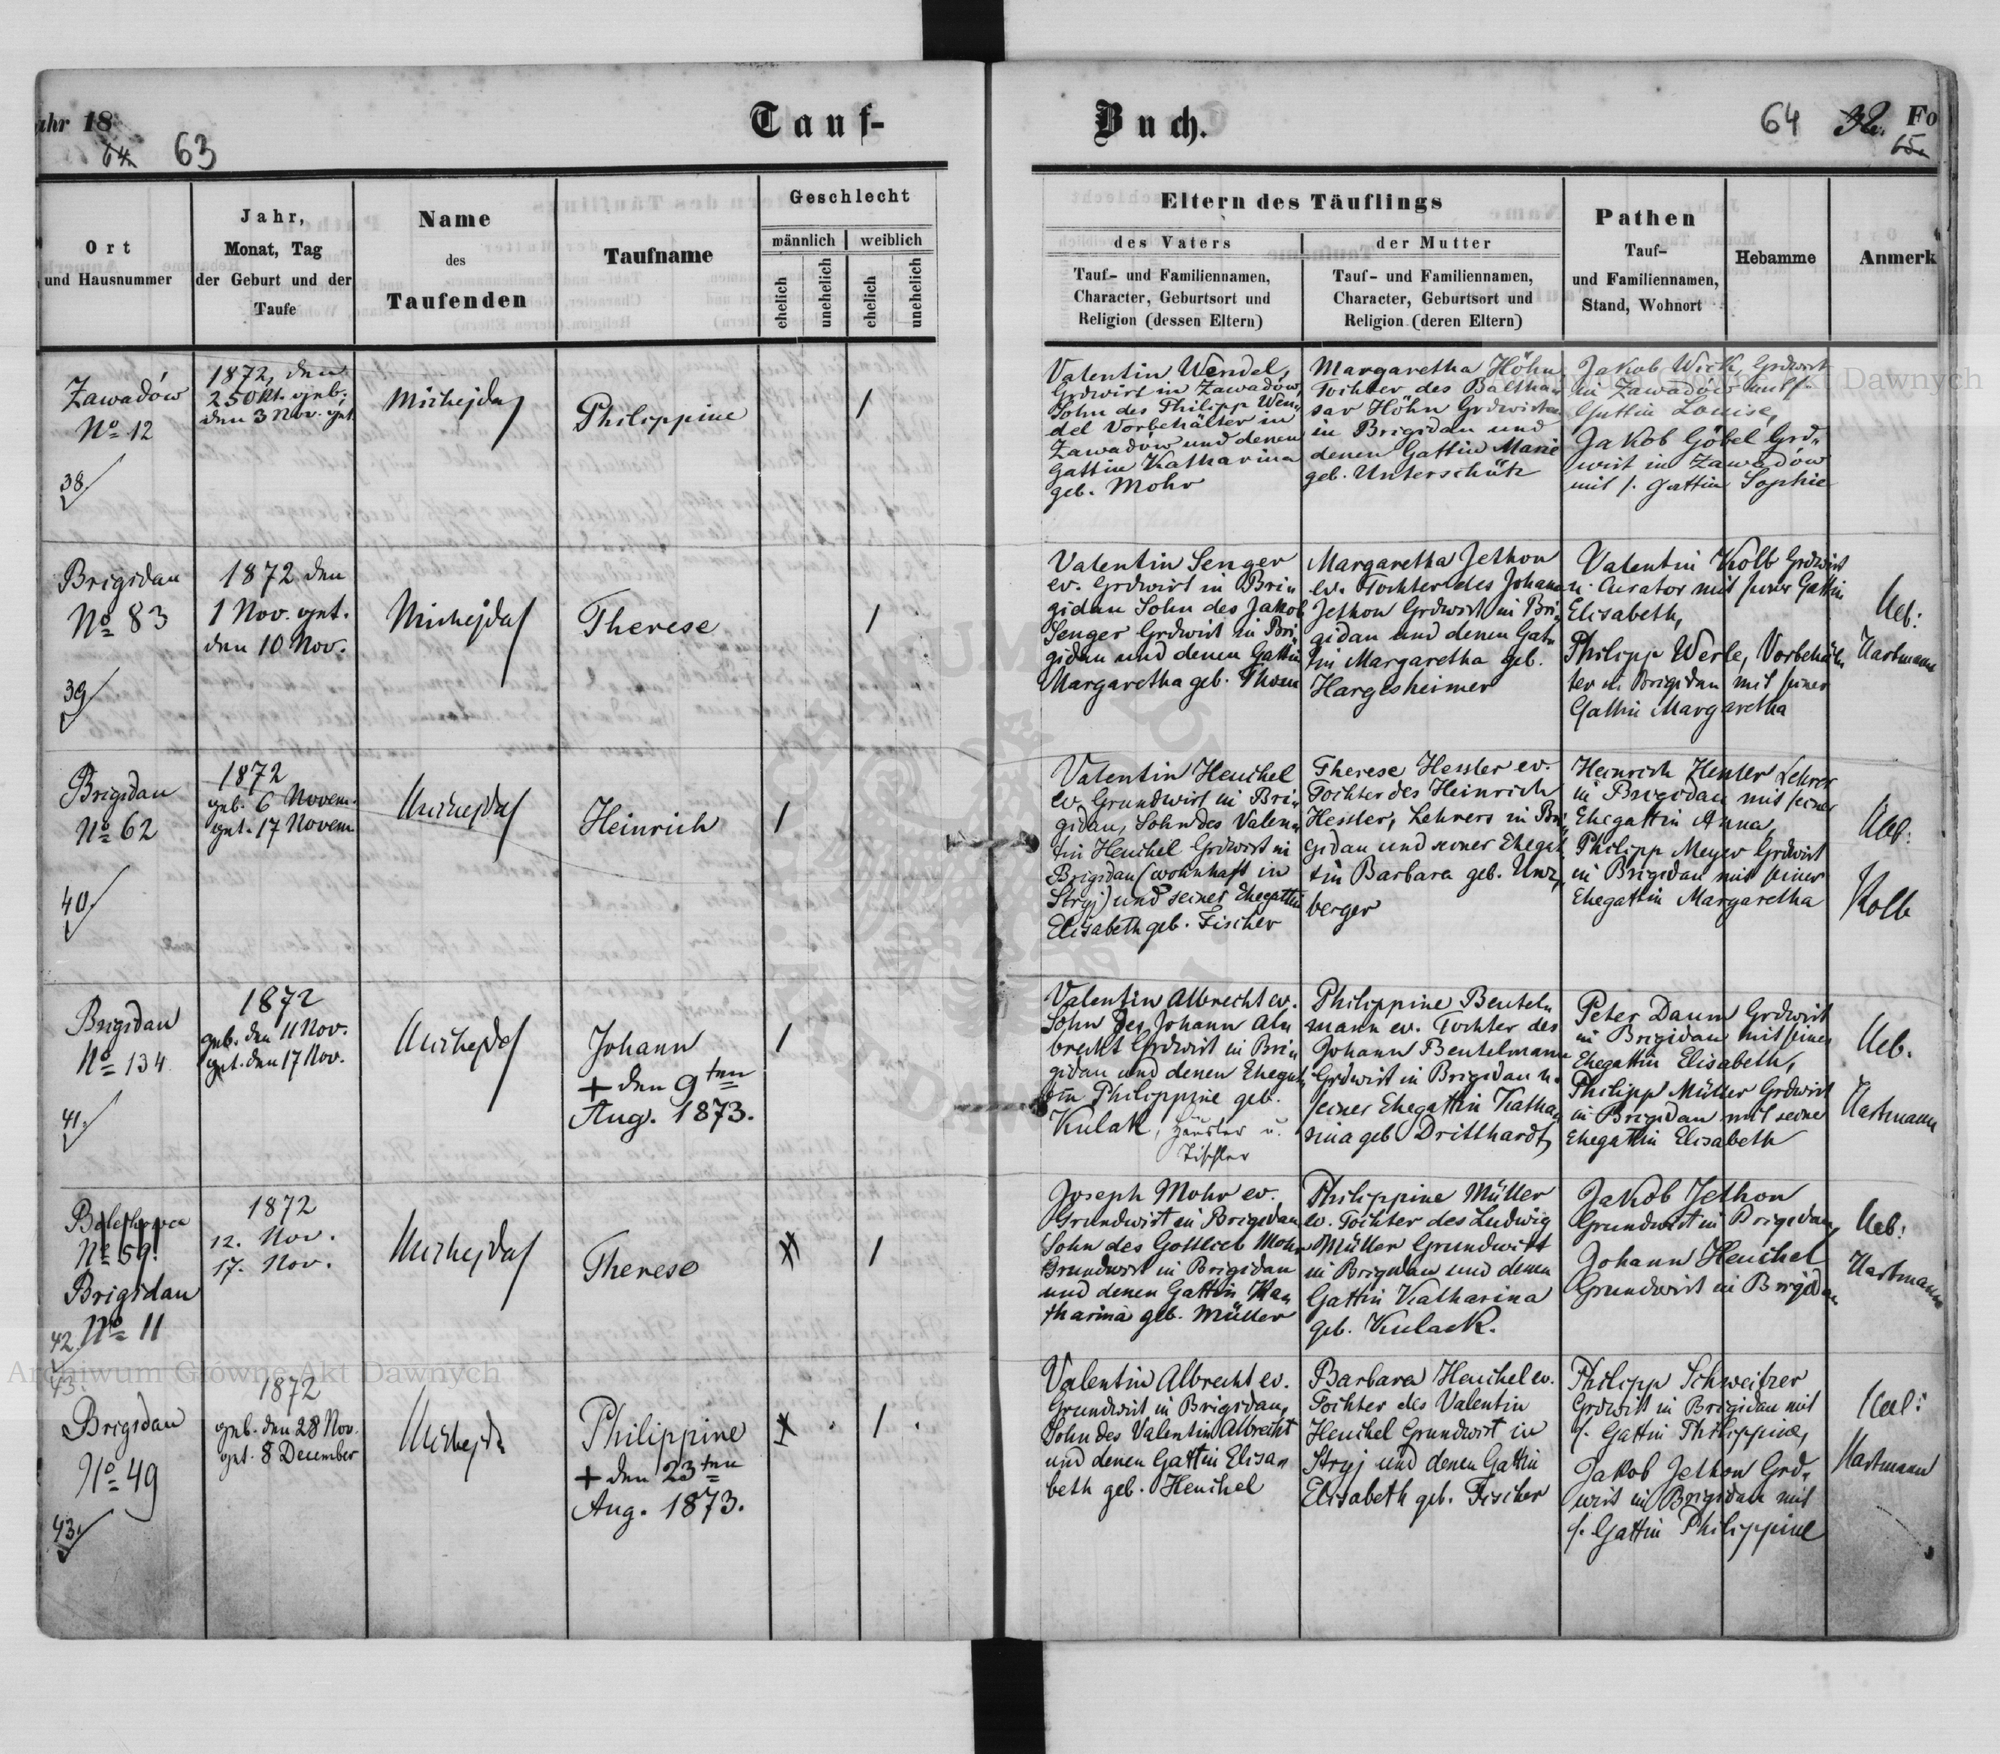 ahr 18
64
63
Tauf-
Buch.
64
32.
Fo
65
Ort
und Hausnummer
Jahr,
Monat, Tag
der Geburt und der
Taufe
Name
des
Taufenden
Taufname
Geschlecht
männlich
weiblich
ehelich
unehelich
ehelich
unehelich
Eltern des Täuflings
des Vaters
Tauf- und Familiennamen,
Character, Geburtsort und
Religion (dessen Eltern)
der Mutter
Tauf- und Familiennamen,
Character, Geburtsort und
Religion (deren Eltern)
Pathen
Tauf-
und Familiennamen,
Stand, Wohnort
Hebamme
Anmerk
Zawadów
No 12
38.
1872, den
25 Okt. geb;
den 3 Nov. get.
Michejda
Philippine
Valentin Wendel,
Grdwirt in Zawadów,
Sohn des Philipp Wen„
del Vorbehälter in
Zawadów und denen
Gattin Katharina
geb. Mohr
Margaretha Höhn
Tochter des Baltha„
sar Höhn Grdwirt
in Brigidau und
denen Gattin Marie
geb. Unterschütz
Jakob Wirth, Grdwirt
in Zawadów mit s.
Gattin Louise,
Jakob Göbel Grd„
wirt in Zawadów
mit s. Gattin Sophie
Brigidau
No 83
39
1872 den
1 Nov. get.
den 10 Nov.
Michejda
Therese
Valentin Senger
ev. Grdwirt in Bri„
gidau Sohn des Jakob
Senger Grdwirt in Bri„
gidau und denen Gattin
Margaretha geb. Thom
Margaretha Jethon
ev. Tochter des Johann
Jethon Grdwirt in Bri„
gidau und denen Gat„
tin Margaretha geb.
Hargesheimer
Valentin Kolb Grdwirt
u. Curator mit seiner Gattin
Elisabeth,
Philipp Werle, Vorbehäl„
ter in Brigidau mit seiner
Gattin Margaretha
Ueb:
Hartmann
Brigidau
No 62
40
1872
geb. 6 Novem.
get. 17 Novem
Michejda
Heinrich
Valentin Heuchel
ev. Grundwirt in Bri„
gidau, Sohn des Valen„
tin Heuchel Grdwirt in
Brigidau (wohnhaft in
Stryj) und seiner Ehegattin
Elisabeth geb. Fischer
Therese Hessler ev.
Tochter des Heinrich
Hessler, Lehrers in Bri„
gidau und seiner Ehegat„
tin Barbara geb. Unz„
berger
Heinrich Hessler Lehrer
in Brigidau mit seiner
Ehegattin Anna,
Philipp Meyer Grdwirt
in Brigidau mit seiner
Ehegattin Margaretha
Ueb:
Kolb
Brigidau
No 134
41.
1872
geb. den 11 Nov.
get. den 17 Nov.
Michejda
Johann
+ den 9ten
Aug. 1873.
Valentin Albrecht ev.
Sohn des Johann Al„
brecht Grdwirt in Bri„
gidau und denen Ehegat„
tin Philippine geb.
Kulak, Häusler u.
Tischler
Philippine Beutel„
mann ev. Tochter des
Johann Beutelmann
Grdwirt in Brigidau u.
seiner Ehegattin Katha„
rina geb Dritthardt,
Peter Daum Grdwirt
in Brigidau mit seiner
Ehegattin Elisabeth,
Philipp Müller Grdwirt
in Brigidau mit seine
Ehegattin Elisabeth
Ueb.
Hartmann
No 59.
Brigidau
42. No 11
1872
12. Nov.
17. Nov.
Michejda
Therese
Joseph Mohr ev.
Grundwirt in Brigidau
Sohn des Gottlieb Mohr
Grundwirt in Brigidau
und denen Gattin Ka„
tharina geb. Müller
Philippine Müller
ev. Tochter des Ludwig
Müller Grundwirt
in Brigidau und denen
Gattin Katharina
geb. Kulack.
Jakob Jethon
Grundwirt in Brigidau,
Johann Heuchel
Grundwirt in Brigidau
Ueb:
Hartmann
43.
Brigidau
No 49
43.
1872
geb. den 28 Nov.
get. 8 December
Michejda
Philippine
+ den 23ten
Aug. 1873.
Valentin Albrecht ev.
Grundwirt in Brigidau,
Sohn des Valentin Albrecht
und denen Gattin Elisa„
beth geb. Heuchel
Barbara Heuchel ev.
Tochter des Valentin
Heuchel Grundwirt in
Stryj und denen Gattin
Elisabeth geb. Fischer
Philipp Schweitzer
Grdwirt in Brigidau mit
s. Gattin Philippine,
Jakob Jethon Grd„
wirt in Brigidau mit
s. Gattin Philippine
Ueb:
Hartmann
Archiwum Główne Akt Dawnych